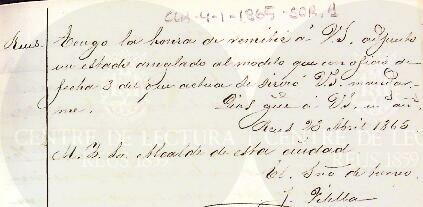 CLR-4-1-1865-COR,1
Reus. Tengo la honra de remitir á V.S. adjunto
un estado arreglado al modelo que con oficio de
fecha 3 del que actua se sirvió V.S. mandar-
me. Dios gue á V.S. m. añs.
Reus 23 Abril 1865
M. I. Sr. Alcalde de esta ciudad
El Srio de turno
J. Vilella
CENTRE DE LECTURA
REUS 1859